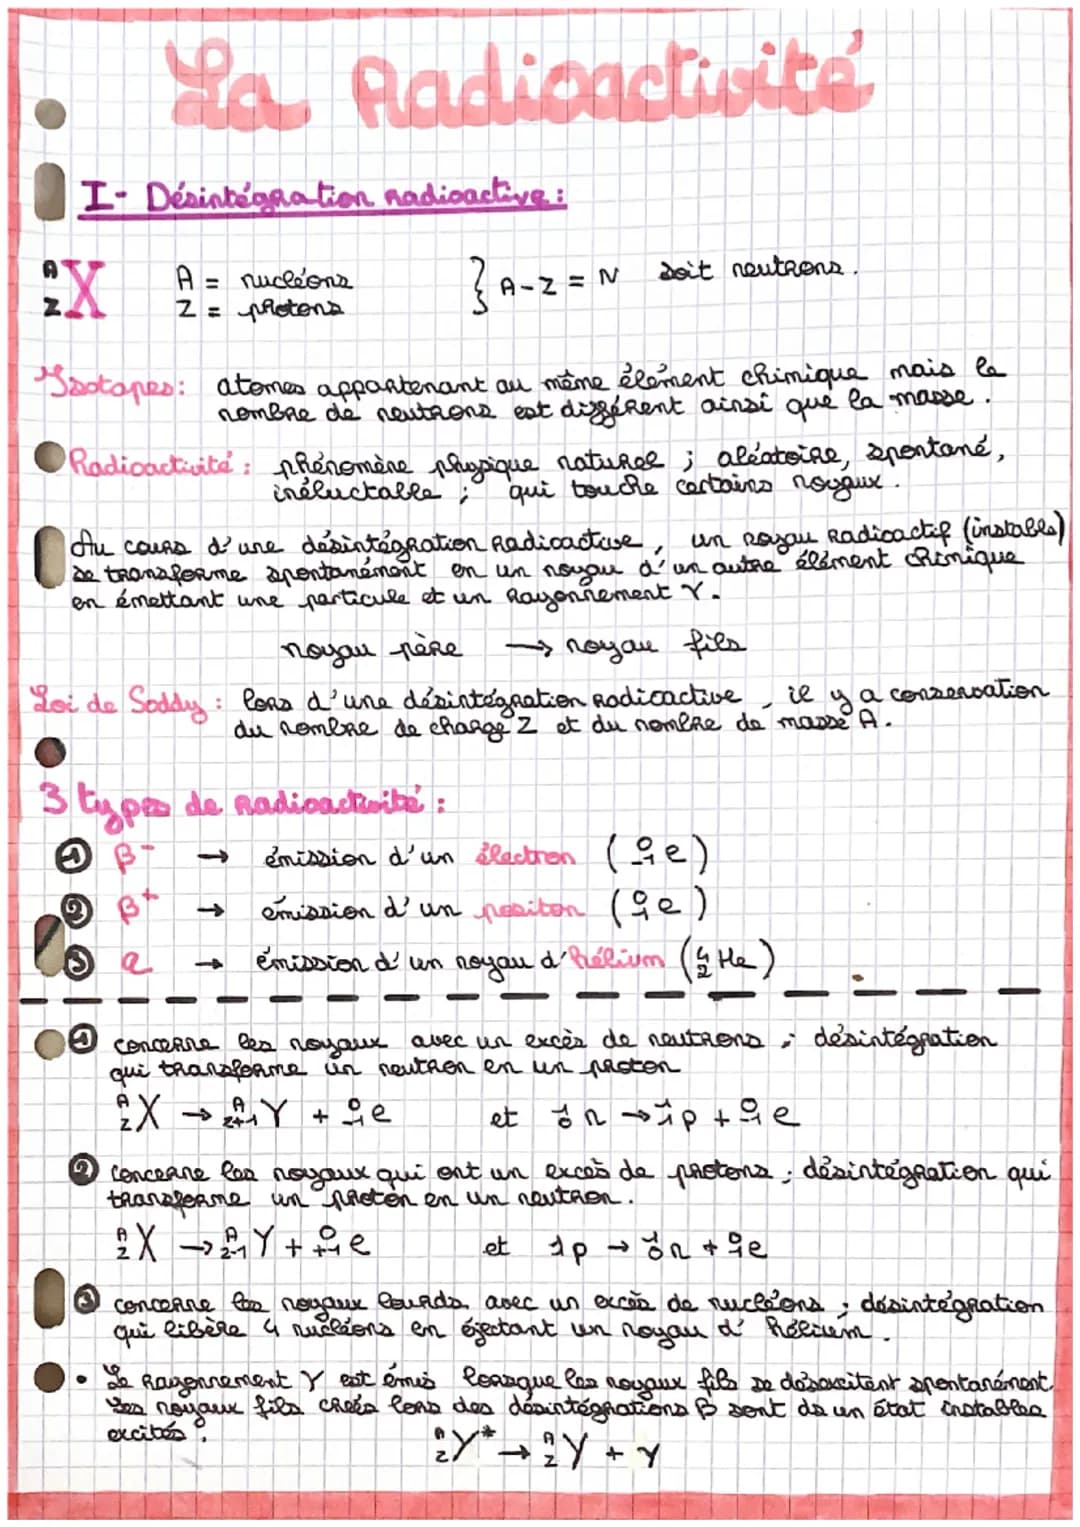 La Radioactivité
I- Désintégration radioactive :
A Z X A = nucléons } A-Z = N soit neutrons.
Z = protons
Isotopes : atomes appartenant au même élément chimique mais le
nombre de neutrons est différent ainsi que la masse.
Radioactivité : phénomène physique naturel ; aléatoire, spontané,
inéluctable ; qui touche certains noyaux.
Au cours d'une désintégration radioactive, un noyau radioactif (instable)
se transforme spontanément en un noyau d'un autre élément chimique
en émettant une particule et un rayonnement γ.
noyau père → noyau fils
Loi de Soddy : lors d'une désintégration radioactive, il y a conservation
du nombre de charge Z et du nombre de masse A.
3 types de radioactivité :
① β⁻ → émission d'un électron (⁰₋₁e)
② β⁺ → émission d'un positon (⁰₁e)
③ α → émission d'un noyau d'hélium (⁴₂He)
① concerne les noyaux avec un excès de neutrons ; désintégration
qui transforme un neutron en un proton
ᴬ_Z X → ᴬ_Z+1 Y + ⁰₋₁e et ¹₀n → ¹₁p + ⁰₋₁e
② concerne les noyaux qui ont un excès de protons ; désintégration qui
transforme un proton en un neutron.
ᴬ_Z X → ᴬ_Z-1 Y + ⁰₊₁e et 1p → ¹₀n + ⁰₁e
③ concerne les noyaux lourds avec un excès de nucléons ; désintégration
qui libère 4 nucléons en éjectant un noyau d'hélium.
• Le rayonnement γ est émis lorsque les noyaux fils se désexcitent spontanément.
Les noyaux fils créés lors des désintégrations β sont ds un état instables
excités.
ᴬ_Z Y* → ᴬ_Z Y + γ